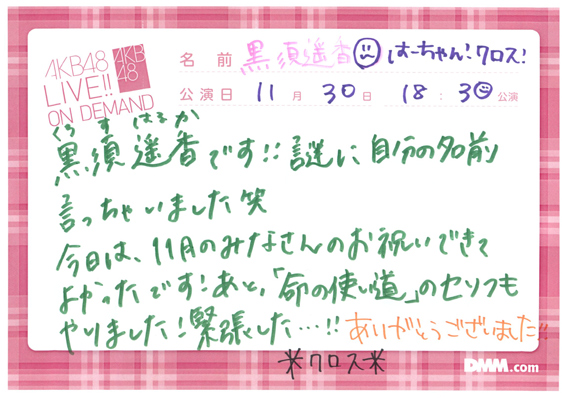 AKB48
LIVE!!
ON DEMAND
AKB
48
名前 黒須遥香 はーちゃん!クロス!
公演日 11月30日 18:30公演
くろ す はるか
黒須遥香です!!謎に自分の名前
言っちゃいました笑
今日は、11月のみなさんのお祝いできて
よかったです!あと、「命の使い道」のセリフも
やりました!緊張した…!!ありがとうございました!!
*クロス*
DMM.com